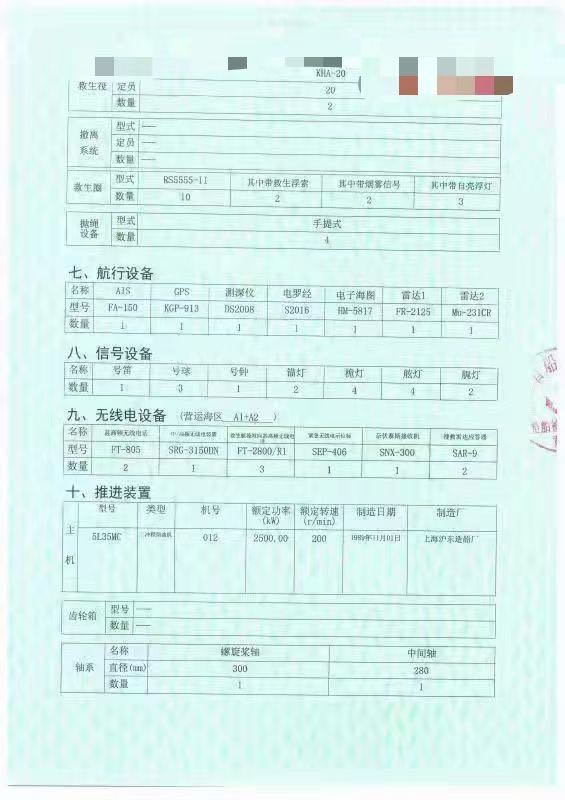 KHA-20
救生筏 定员 20
数量 2
撤离系统 型式 ---
定员 ---
数量 ---
救生圈 型式 RS5555-II 其中带救生浮索 其中带烟雾信号 其中带自亮浮灯
数量 10 2 2 3
抛绳设备 型式 手提式
数量 4
七、航行设备
名称 AIS GPS 测深仪 电罗经 电子海图 雷达1 雷达2
型号 FA-150 KGP-913 DS2008 S2016 HM-5817 FR-2125 Mu-231CR
数量 1 1 1 1 1 1 1
八、信号设备
名称 号笛 号球 号钟 锚灯 桅灯 舷灯 艉灯
数量 1 3 1 2 4 4 2
九、无线电设备 (营运海区 A1+A2 )
名称 甚高频无线电话
型号 FT-805 SRG-3150DN FT-2800/R1 SEP-406 SNX-300 SAR-9
数量 2 1 3 1 1 2
十、推进装置
主机 型号 类型 机号 额定功率(kW) 额定转速(r/min) 制造日期 制造厂
5L35MC 012 2500.00 200 1989年11月01日 上海沪东造船厂
齿轮箱 型号 ---
数量 ---
轴系 名称 螺旋桨轴 中间轴
直径(mm) 300 280
数量 1 1
船